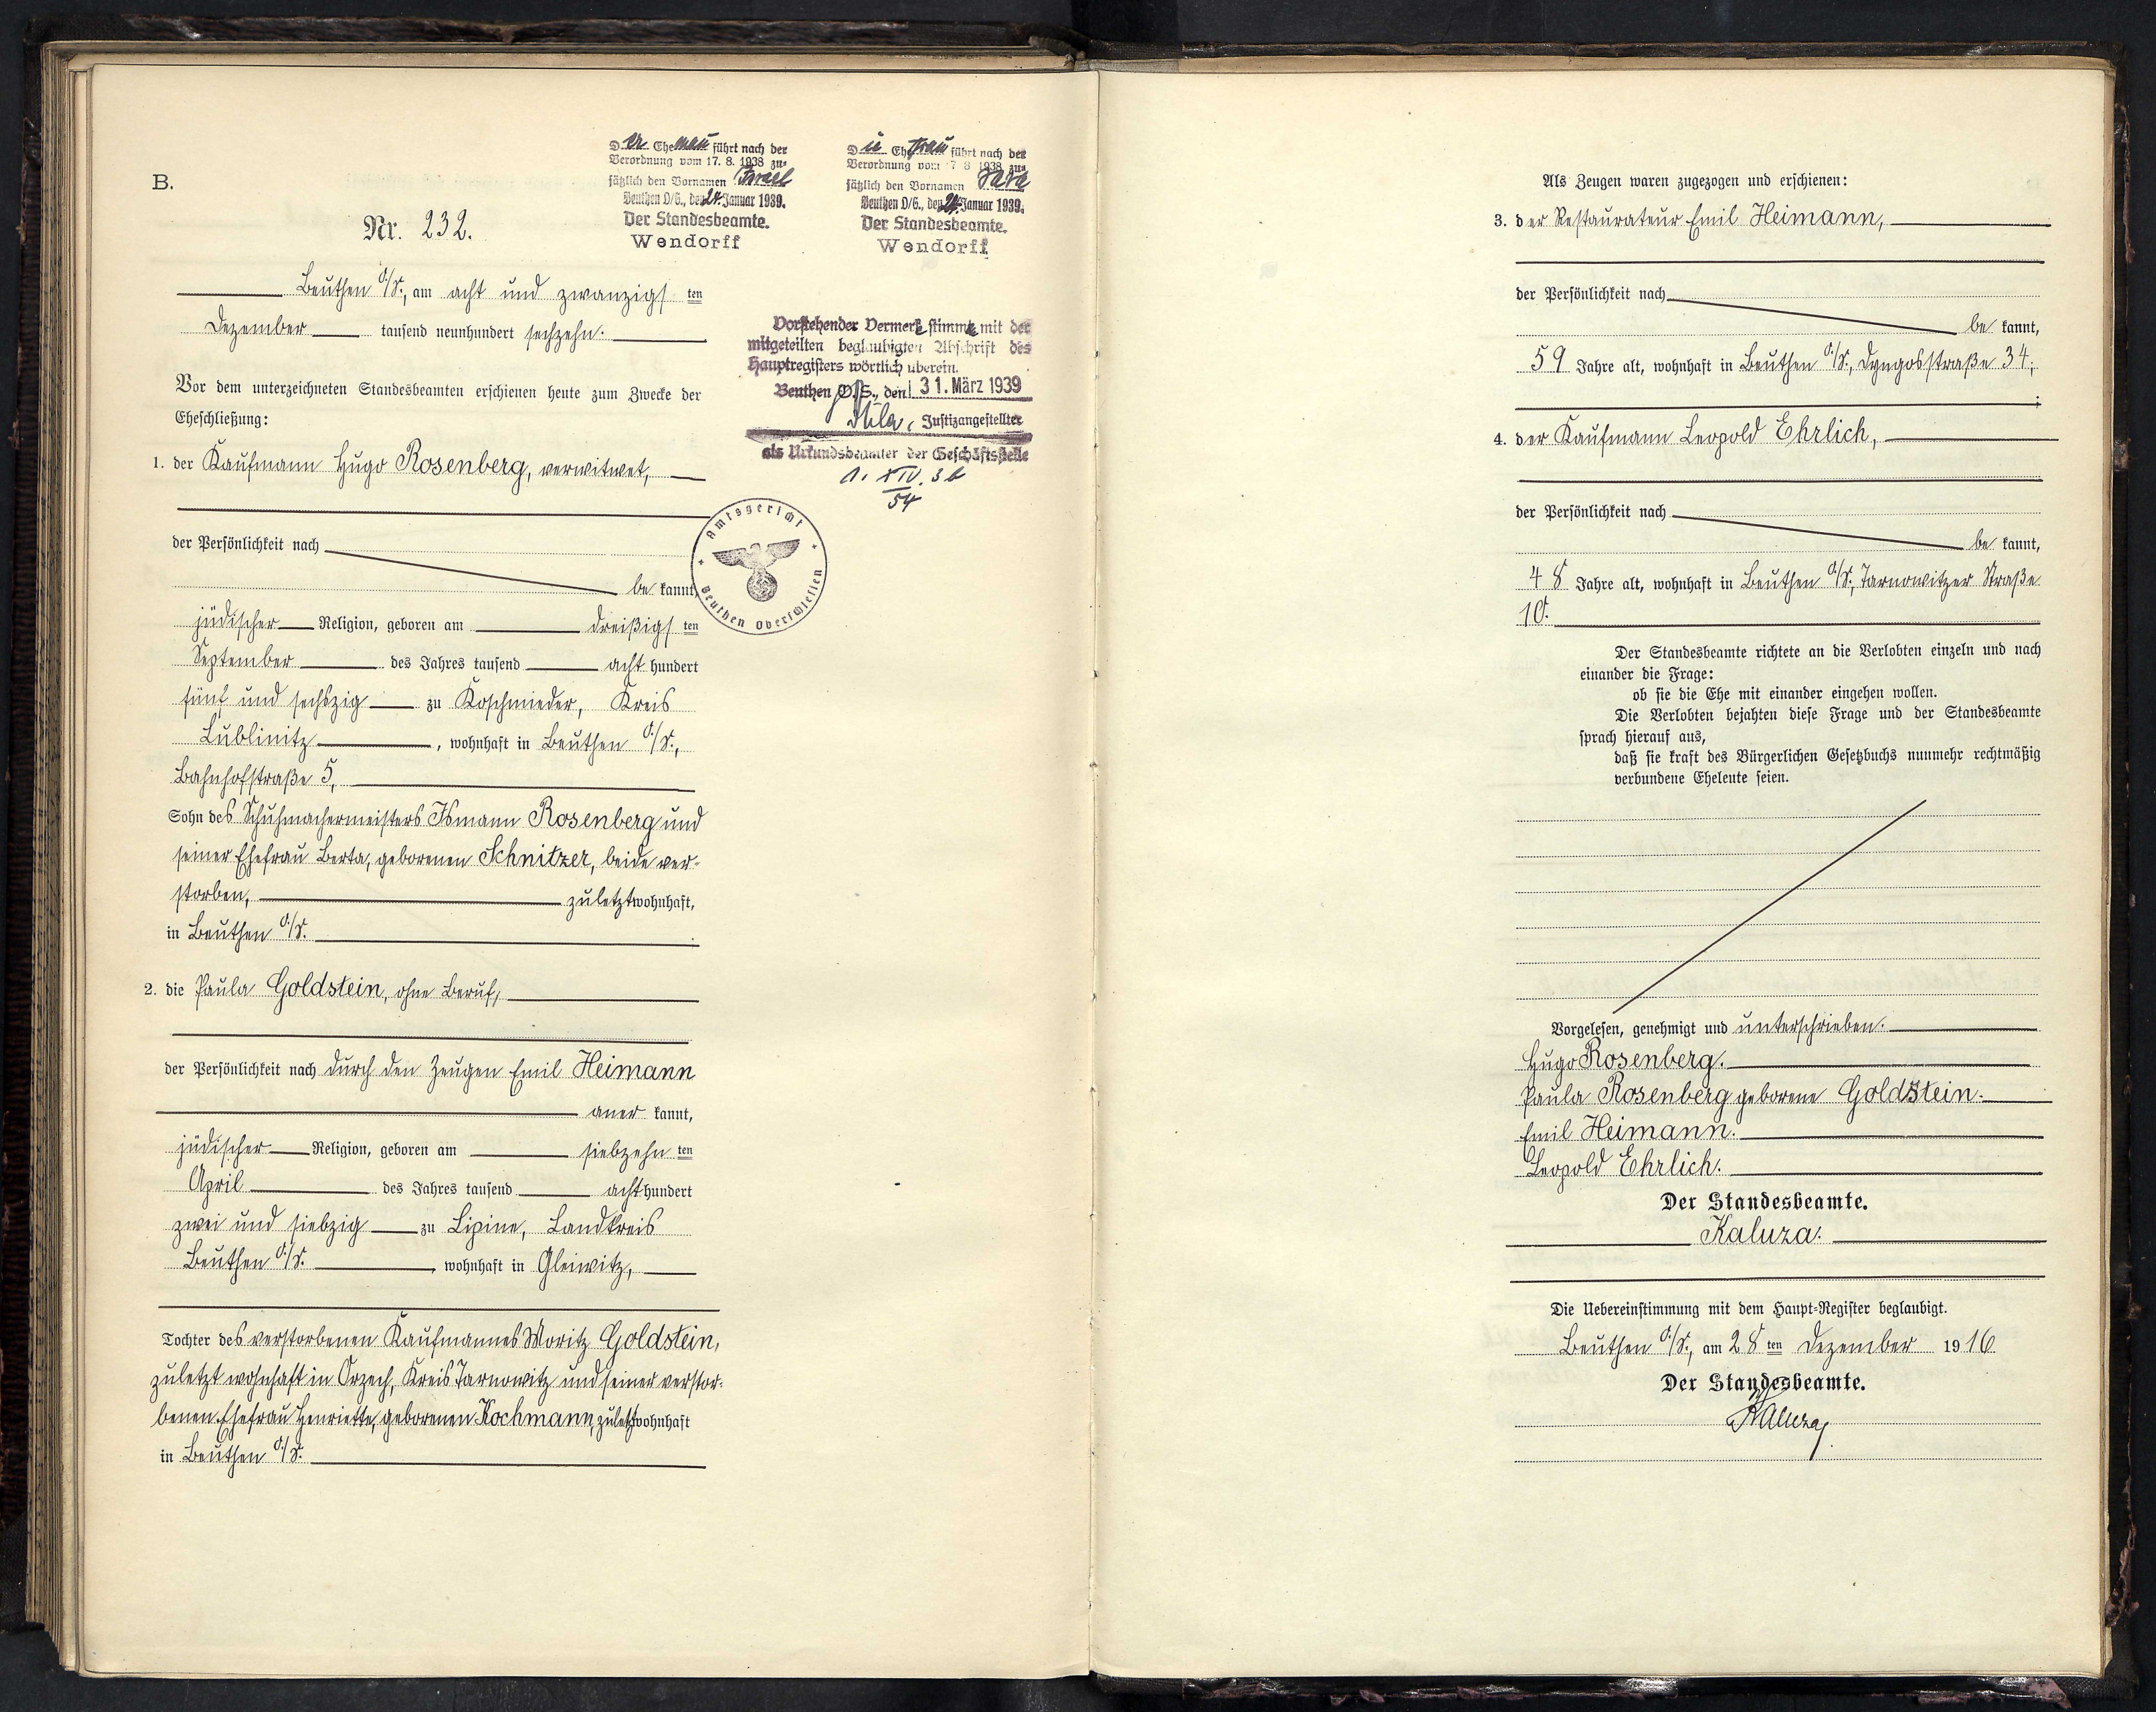 B.
Nr. 232.
Der Ehemann führt nach der
Verordnung vom 17. 8. 1938 zu-
sätzlich den Vornamen Israel
Beuthen O/S., den 24. Januar 1939.
Der Standesbeamte.
Wendorff
Die Ehefrau führt nach der
Verordnung vom 17 8 1938 zu-
sätzlich den Vornamen Sara
Beuthen O/S., den 24. Januar 1939.
Der Standesbeamte.
Wendorff
Beuthen O/S., am acht und zwanzigsten
Dezember tausend neunhundert sechzehn.
Vor dem unterzeichneten Standesbeamten erschienen heute zum Zwecke der
Eheschließung:
1. der Kaufmann Hugo Rosenberg, verwitwet,
der Persönlichkeit nach
be kannt,
jüdischer Religion, geboren am dreißigsten
September des Jahres tausend acht hundert
fünf und sechszig zu Koschmieder, Kreis
Lublinitz, wohnhaft in Beuthen O/S.,
Bahnhofstraße 5,
Sohn des Schuhmachermeisters Ismann Rosenberg und
seiner Ehefrau Berta, geborenen Schnitzer, beide ver-
storben, zuletzt wohnhaft,
in Beuthen O/S.
2. die Paula Goldstein, ohne Beruf,
der Persönlichkeit nach durch den Zeugen Emil Heimann
aner kannt,
jüdischer Religion, geboren am siebzehnten
April des Jahres tausend acht hundert
zwei und siebzig zu Lipine, Landkreis
Beuthen O/S., wohnhaft in Gleiwitz,
Tochter des verstorbenen Kaufmannes Moritz Goldstein,
zuletzt wohnhaft in Orzech, Kreis Tarnowitz und seiner verstor-
benen Ehefrau Henriette, geborenen Kochmann, zuletzt wohnhaft
in Beuthen O/S.
Vorstehender Vermerk stimmt mit der
mitgeteilten beglaubigten Abschrift des
Hauptregisters wörtlich überein.
Beuthen O/S., den 31. März 1939
Justizangestellter
als Urkundsbeamter der Geschäftsstelle
XIV. 3 b
54
Amtsgericht
Beuthen Oberschlesien
Als Zeugen waren zugezogen und erschienen:
3. der Restaurateur Emil Heimann,
der Persönlichkeit nach
be kannt,
59 Jahre alt, wohnhaft in Beuthen O/S., Dyngosstraße 34;
;
4. der Kaufmann Leopold Ehrlich,
der Persönlichkeit nach
be kannt,
48 Jahre alt, wohnhaft in Beuthen O/S., Tarnowitzer Straße
10.
Der Standesbeamte richtete an die Verlobten einzeln und nach
einander die Frage:
ob sie die Ehe mit einander eingehen wollen.
Die Verlobten bejahten diese Frage und der Standesbeamte
sprach hierauf aus,
daß sie kraft des Bürgerlichen Gesetzbuchs nunmehr rechtmäßig
verbundene Eheleute seien.
Vorgelesen, genehmigt und unterschrieben.
Hugo Rosenberg.
Paula Rosenberg geborene Goldstein.
Emil Heimann.
Leopold Ehrlich.
Der Standesbeamte.
Kaluza.
Die Uebereinstimmung mit dem Haupt-Register beglaubigt.
Beuthen O/S., am 28 ten Dezember 1916
Der Standesbeamte.
Kaluza